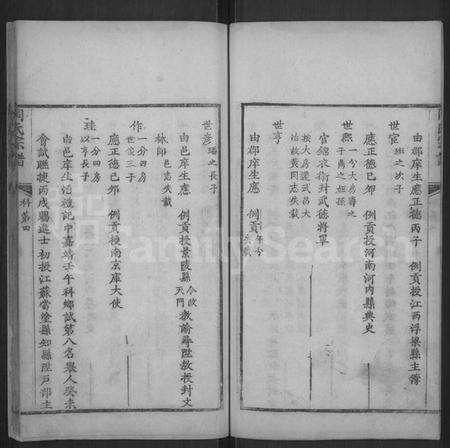 世宦 珽之次子
由郡庠生應正德丙子 例貢授江西浮梁縣主簿
世熙 一分大房壽之子喬之姪孫
應正德己卯 例貢授河南河內縣典史
官錦衣衛封武德將軍
按大房遷武昌大冶故黃岡志失載
世亨
由郡庠生應 例貢 年分失載
世彥 瑞之長子
由邑庠生應 例貢授景陵縣 今改天門 教諭尋陞教授封文
林郎 邑志失載
作 一分四房世安三子
應正德己卯 例貢授南京庫大使
珪 一分四房以亨長子
由邑庠生治禮記中嘉靖壬午科鄉試第八名舉人癸未
會試聯捷丙戌賜進士初授江蘇當塗縣知縣陞戶部主
氏宗譜
科第
四
FamilySearch